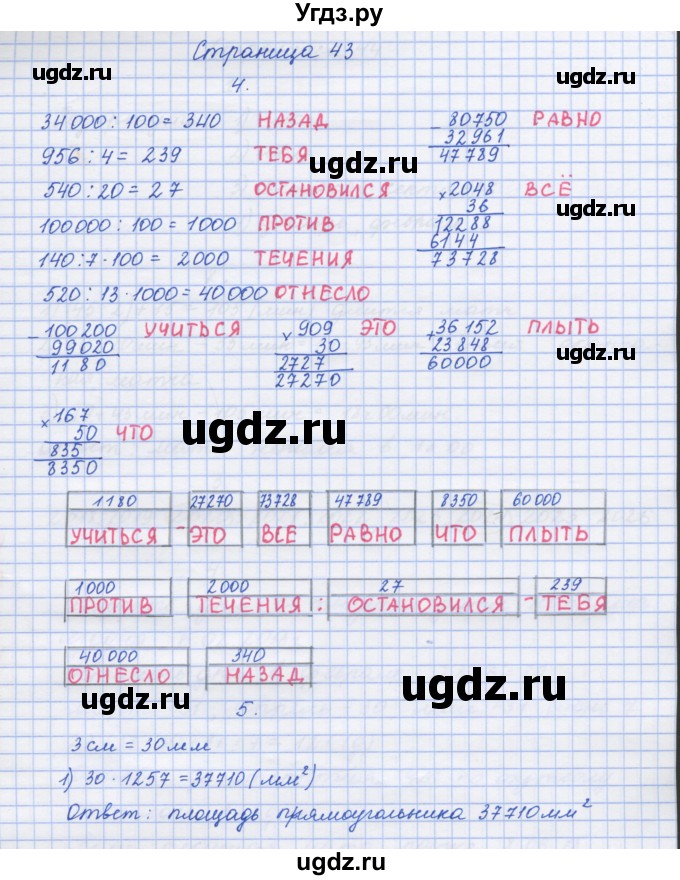 Угдз.ру
Страница 43
ugdz.ru ugdz.ru
4.
34 000 : 100 = 340 НАЗАД
956 : 4 = 239 ТЕБЯ
ugdz.ru
540 : 20 = 27 ОСТАНОВИЛСЯ
100000 : 100 = 1000 ПРОТИВ
140 : 7 · 100 = 2000 ТЕЧЕНИЯ
520 : 13 · 1000 = 40 000 ОТНЕСЛО
- 80750 РАВНО
32961
47789
× 2048 ВСЁ
36
12288
6144
73728
ugdz.ru ugdz.ru
- 100 200 УЧИТЬСЯ
99020
1180
× 909 ЭТО
30
2727
27270
+ 36 152 ПЛЫТЬ
23 848
60000
× 167
50 ЧТО
835
8350
ugdz.ru ugdz.ru
1180 27270 73728 47789 8350 60 000
УЧИТЬСЯ - ЭТО ВСЕ РАВНО ЧТО ПЛЫТЬ
1000 2000 27 239
ПРОТИВ ТЕЧЕНИЯ : ОСТАНОВИЛСЯ - ТЕБЯ
ugdz.ru ugdz.ru
40 000 340
ОТНЕСЛО НАЗАД
ugdz.ru ugdz.ru
5.
3 см = 30 мм
1) 30 · 1257 = 37710 (мм²)
Ответ: площадь прямоугольника 37710 мм²
ugdz.ru ugdz.ru
ugdz.ru